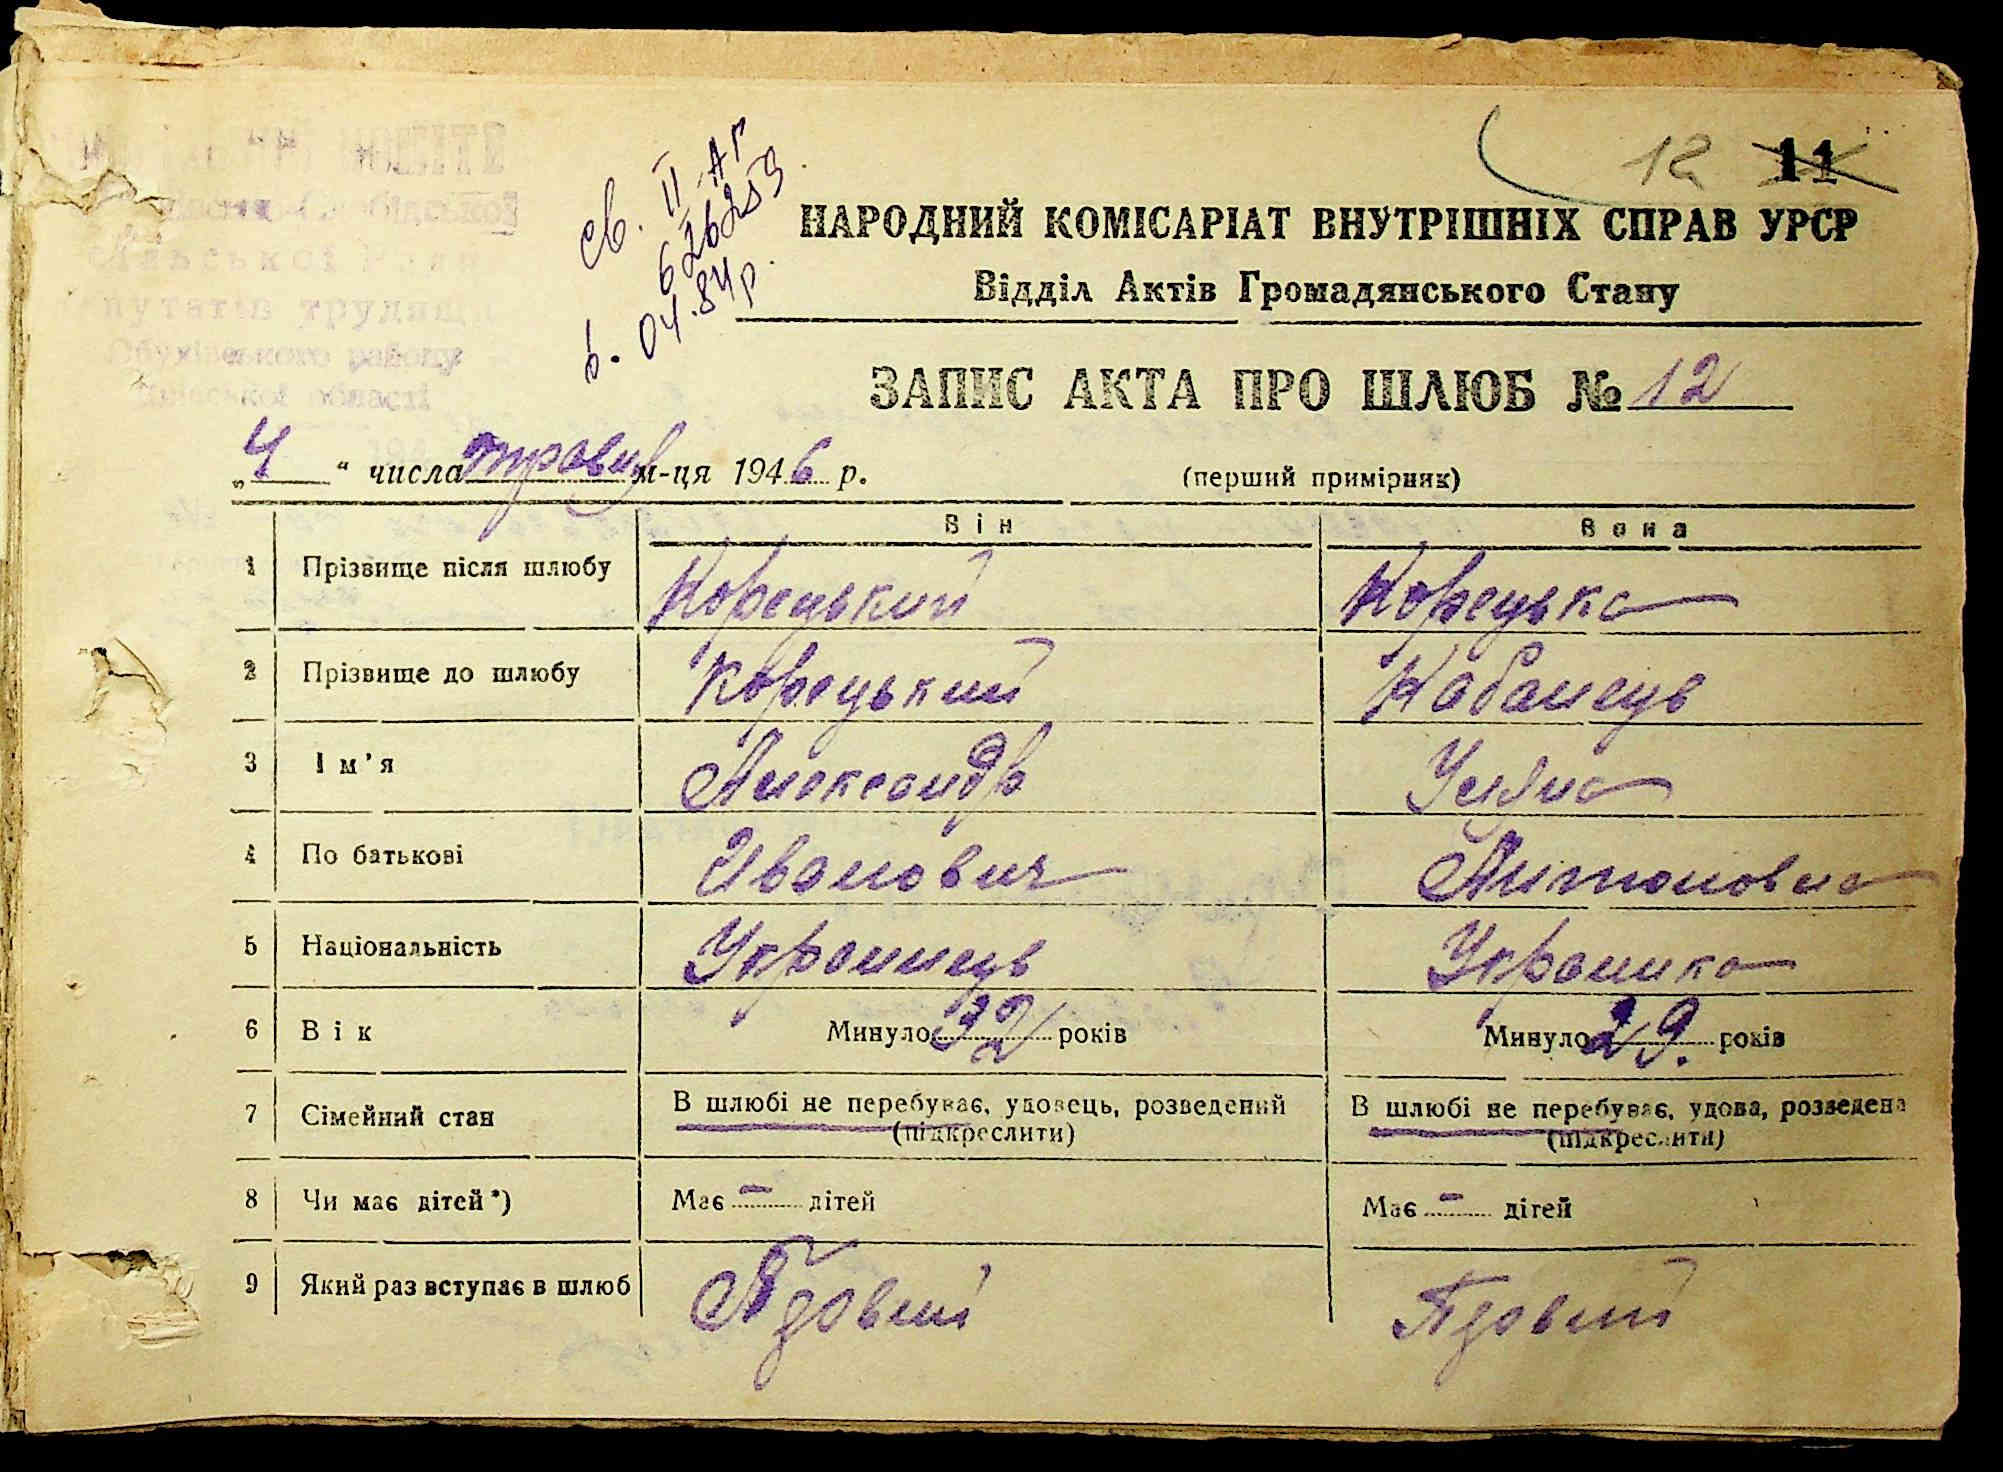 12 11
св. II-АГ
626253
6.04.84р.
НАРОДНИЙ КОМІСАРІАТ ВНУТРІШНІХ СПРАВ УРСР
Відділ Актів Громадянського Стану
сільської Ради
депутатів трудящ
Обухівського району
Київської області
ЗАПИС АКТА ПРО ШЛЮБ № 12
„4“ числа травня м-ця 1946 р. (перший примірник)
Він Вона
1 Прізвище після шлюбу Корецький Корецька
2 Прізвище до шлюбу Корецький Кабанець
3 Ім'я Александр Уляна
4 По батькові Иванович Антоновна
5 Національність Украинець Украинка
6 Вік Минуло 32 років Минуло 29. років
7 Сімейний стан В шлюбі не перебуває, удовець, розведений В шлюбі не перебуває, удова, розведена
(підкреслити) (підкреслити)
8 Чи має дітей*) Має – дітей Має – дітей
9 Який раз вступає в шлюб